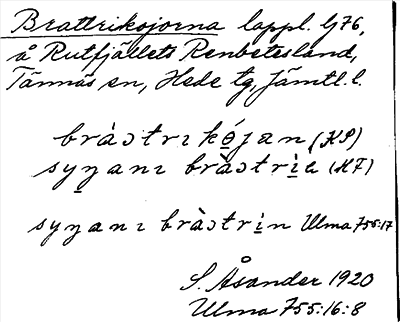 Brattriksjorna lappl. Lj76,
å Rutfjällets Renbetesland,
Tännäs sn, Hede tg, Jämtl. l.
bràɔtrı kǿjan (KP)
syŋanı bràɔtrìɛ (KF)
syŋanı bràɔtrin Ulma 755:17
S. Åsander 1920
Ulma 755:16:8